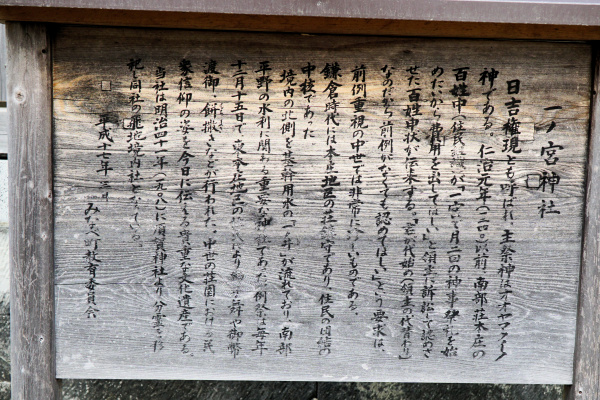 一ノ宮神社
日吉権現とも呼ばれ、主祭神はオオヤマクイノ
神である。仁治元年(一二四〇)以前、南部荘本庄の
百姓中(住民)が、一宮で月二回の神事祭礼を始
めたから費用を出してほしいと領主に訴訟して認めさ
せた百姓申状が伝来する。
なのだから前例がなくても認めてほしいという要求は、
前例重視の中世では非常に いものである。
鎌倉時代には 地区の荘鎮守であり、住民の団結の
中核であった。
境内の北側を基幹用水の が流れており、南部
平野の水利に関わる重要な神社である。例祭は毎年
十一月十五日で、 地区の により や御幣
渡御、餅撒きなどが行われた。中世の荘園における民
衆信仰の姿を今日に伝える貴重な文化遺産である。
当社は明治四十一年(一九〇八)に須賀神社より分霊を移
祀し同社の飛地境内社となっている。
平成十七年三月
みなべ町教育委員会